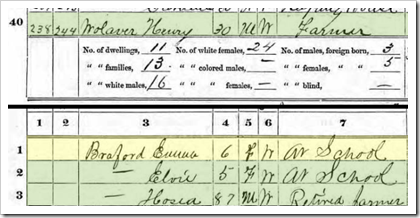 40 238 244 Wolaver Henry 30 M W Farmer
No. of dwellings, 11 No. of white females, 24 No. of males, foreign born, 3
" " families, 13 " " colored males, — " " females, " " 5
" " white males, 16 " " " females, — " " blind, —
1 2 3 4 5 6 7
1 Braford Emma 6 F W At School
2 — Elvie 5 F W At School
3 — Hosea 87 M W Retired farmer